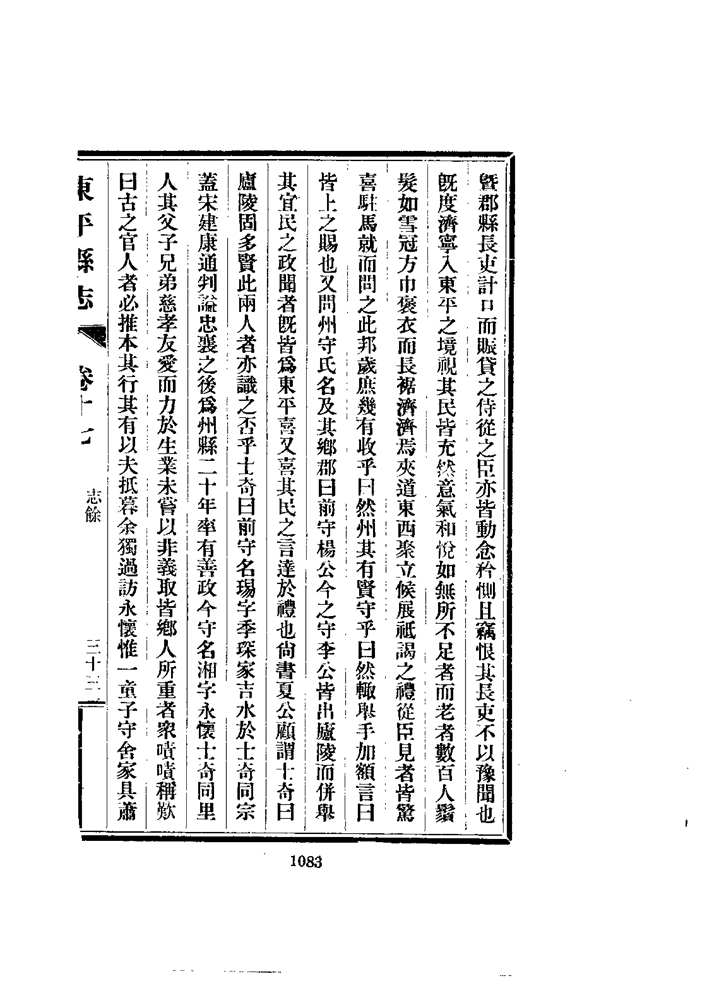 曁郡縣長吏計口而賑貸之侍從之臣亦皆動念矜惻且竊恨其長吏不以豫聞也
旣度濟寧入東平之境視其民皆充然意氣和悅如無所不足者而老者數百人鬚
髮如雪冠方巾褒衣而長裾濟濟焉夾道東西聚立候展祗謁之禮從臣見者皆驚
喜駐馬就而問之此邦歲庶幾有收乎曰然州其有賢守乎曰然輙舉手加額言曰
皆上之賜也又問州守氏名及其鄉郡曰前守楊公今之守李公皆出廬陵而併舉
其宜民之政聞者旣皆爲東平喜又喜其民之言達於禮也尙書夏公顧謂士奇曰
廬陵固多賢此兩人者亦識之否乎士奇曰前守名瑒字季琛家吉水於士奇同宗
蓋宋建康通判謚忠襄之後爲州縣二十年率有善政今守名湘字永懷士奇同里
人其父子兄弟慈孝友愛而力於生業未嘗以非義取皆鄉人所重者衆嘖嘖稱歎
曰古之官人者必推本其行其有以夫抵暮余獨過訪永懷惟一童子守舍家具蕭
東平縣志 卷十七 志餘 三十三
1083